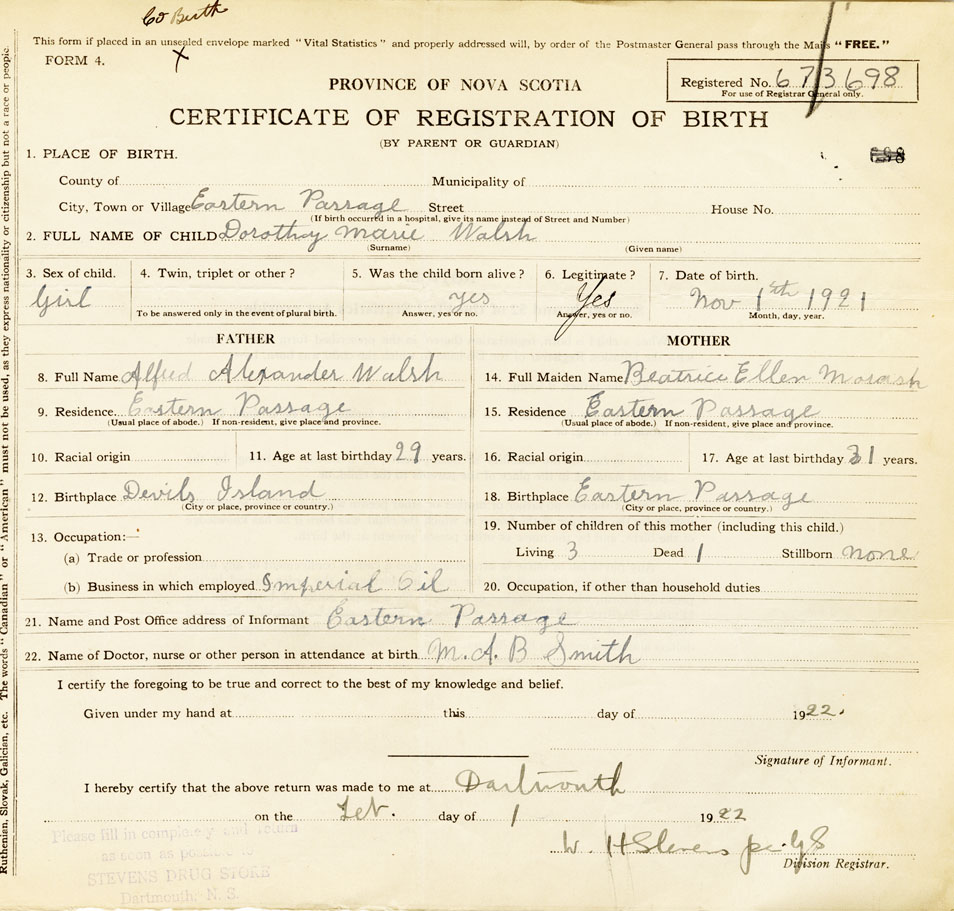 Co Birth
This form if placed in an unsealed envelope marked "Vital Statistics" and properly addressed will, by order of the Postmaster General pass through the Mails "FREE."
FORM 4.
X
PROVINCE OF NOVA SCOTIA
Registered No. 673698
For use of Registrar General only.
CERTIFICATE OF REGISTRATION OF BIRTH
(BY PARENT OR GUARDIAN)
1. PLACE OF BIRTH.
County of Municipality of
City, Town or Village Eastern Passage Street House No.
(If birth occurred in a hospital, give its name instead of Street and Number)
2. FULL NAME OF CHILD Dorothy Marie Walsh
(Surname) (Given name)
3. Sex of child. 4. Twin, triplet or other? 5. Was the child born alive? 6. Legitimate? 7. Date of birth.
Girl yes Yes Nov 1th 1921
To be answered only in the event of plural birth. Answer, yes or no. Answer, yes or no. Month, day, year.
FATHER MOTHER
8. Full Name Alfred Alexander Walsh 14. Full Maiden Name Beatrice Ellen Mosash
9. Residence. Eastern Passage 15. Residence Eastern Passage
(Usual place of abode.) If non-resident, give place and province. (Usual place of abode.) If non-resident, give place and province.
10. Racial origin 11. Age at last birthday 29 years. 16. Racial origin 17. Age at last birthday 31 years.
12. Birthplace Devils Island 18. Birthplace Eastern Passage
(City or place, province or country.) (City or place, province or country.)
13. Occupation:— 19. Number of children of this mother (including this child.)
(a) Trade or profession Living 3 Dead 1 Stillborn none
(b) Business in which employed Imperial Oil 20. Occupation, if other than household duties
21. Name and Post Office address of Informant Eastern Passage
22. Name of Doctor, nurse or other person in attendance at birth M. A. B Smith
I certify the foregoing to be true and correct to the best of my knowledge and belief.
Given under my hand at this day of 1922.
Signature of Informant.
I hereby certify that the above return was made to me at Dartmouth
on the Feb. day of 1 1922
W. H Stevens per GS
Division Registrar.
Please fill in completely and return
as soon as possible to
STEVENS DRUG STORE
Dartmouth, N. S.
Ruthenian, Slovak, Galician, etc. The words "Canadian" or "American" must not be used, as they express nationality or citizenship but not a race or people.